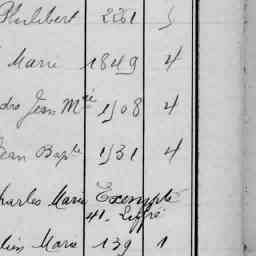 Philibert 2261 5
Marie 1849 4
Jean Mie 1508 4
Jean Bapte 1531 4
Charles Marie Exempté
41. Liffré
Marie 139 1